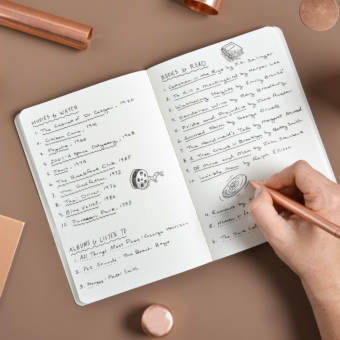 MOVIES to WATCH
1. The Cabinet of Dr. Caligari, 1920
2. Citizen Kane, 1941
3. Psycho, 1960
4. 2001: A Space Odyssey, 1968
5. Jaws, 1975
6. The Breakfast Club, 1985
7. The Godfather, 1972
8. The
9. Blue Velvet, 1986
10. Jurassic Park,
ALBUMS to LISTEN TO
1. All Things Must Pass - George Harrison
2. Pet Sounds - The Beach Boys
3. Horses - Patti Smith
BOOKS to READ
1. Catcher in the Rye by J.D. Salinger
2. To Kill a Mockingbird by Harper Lee
3. Wuthering Heights by Emily Brontë
4. Dandelion Wine by Ray Bradbury
5. Pride and Prejudice by Jane Austen
6. Animal Farm by George Orwell
7. The Handmaid's Tale by Margaret Atwood
8. A Tree Grows in Brooklyn by Betty Smith
9. Of Mice and Men by John
10. Invisible Man by Ralph Ellison